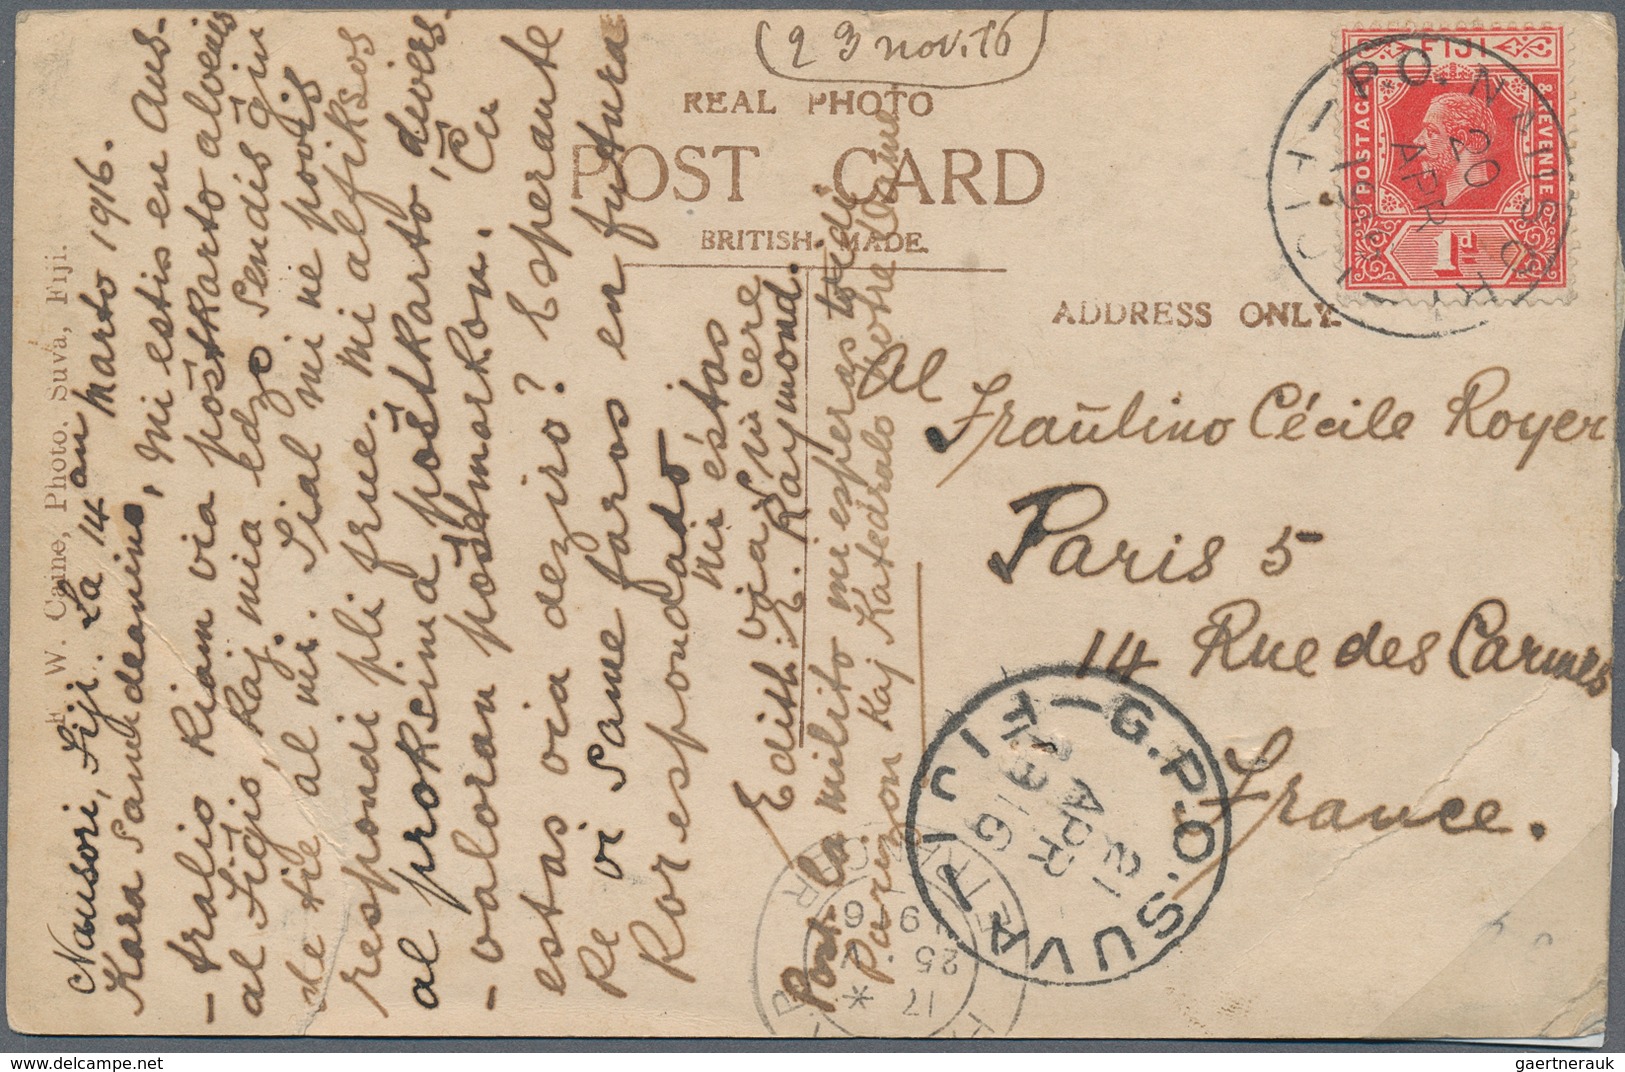 (23 nov. 16)
REAL PHOTO
POST CARD
BRITISH MADE.
ADDRESS ONLY.
FIJI
POSTAGE & REVENUE
1d
P.O. NAUSORI
20
APR
FIJI
Al
Fraŭlino Cécile Royer
Paris 5
14 Rue des Carmes
France.
G.P.O. SUVA FIJI
AP R
W. Caine, Photo. Suva, Fiji.
Nausori, Fiji. La 14an Marto 1916.
Kara Samideanino, Mi estis en Aus-
-tralio kiam via poŝtkarto alvenis
al Fiĝio, kaj mia edzo sendis ĝin
al mi. mi ne povis
respondi pli frue. Mi alfiksos
al proksima poŝtkarto, divers-
-valoran poŝtmarkon. Ĉu
estas via deziro? Esperante
ke vi same faros en futura
Korespondado
Mi estas
Via sincere
Edith E. Raymond.
Post la milito mi esperas vidi
Parizon kaj Katedralo Notre Dame
17
25